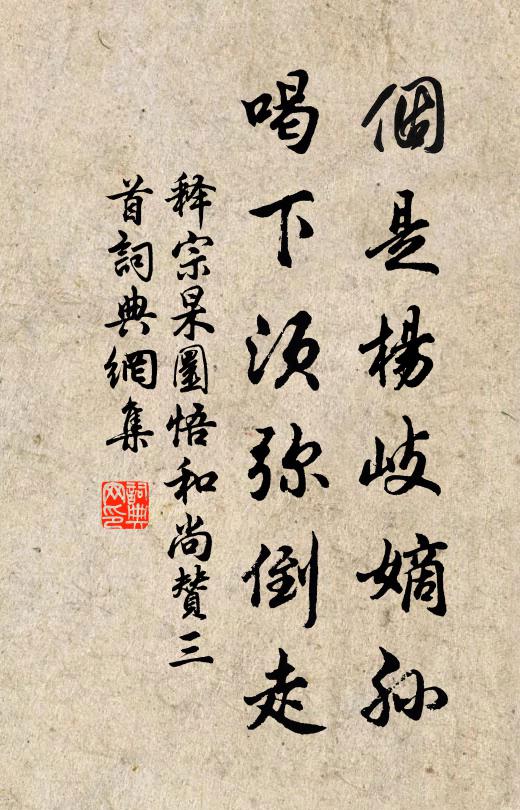 個是楊岐嫡孙
喝下須弥倒走
释宗杲圜悟和尚贊三
首詞典網集
詞典
网印